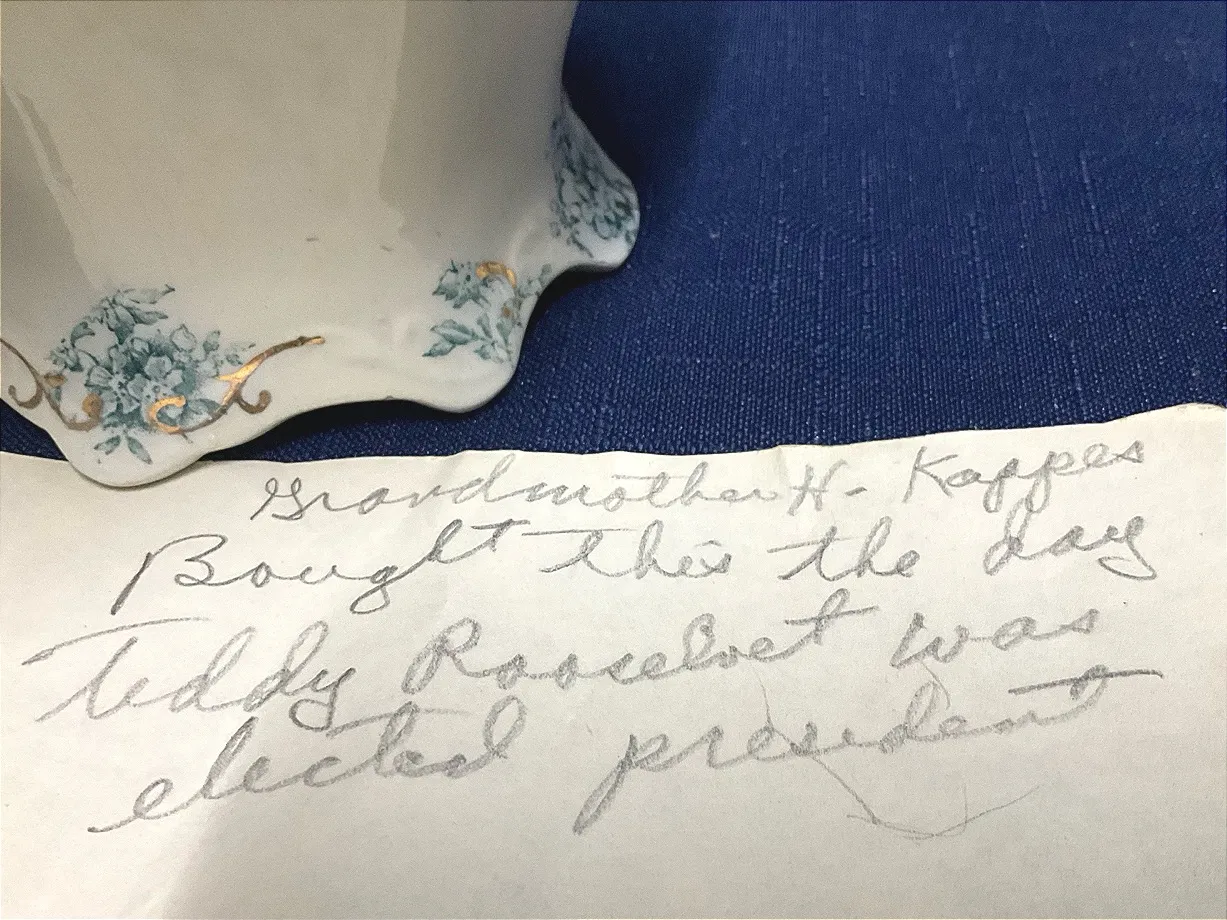 Grandmother H- Kappes
Bought this the day
Teddy Rooselvet was
elected president